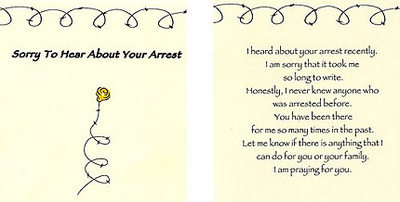 Sorry To Hear About Your Arrest
I heard about your arrest recently.
I am sorry that it took me
so long to write.
Honestly, I never knew anyone who
was arrested before.
You have been there
for me so many times in the past.
Let me know if there is anything that I
can do for you or your family.
I am praying for you.